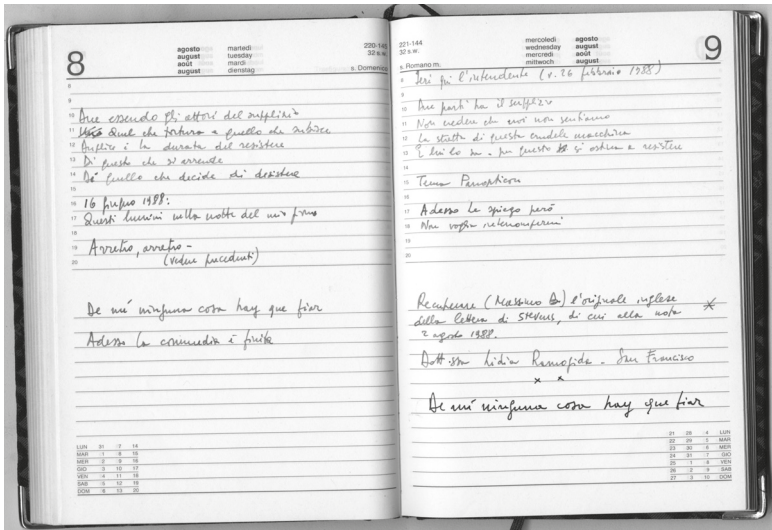 8
agosto martedì
august tuesday
août mardi
august dienstag
220-145
32 s.w.
s. Domenico
8
9
10 Due essendo gli attori del supplizio
11 Quel che tortura a quello che subisce
12 Duplice è la durata del resistere
13 Di questo che si arrende
14 Di quello che decide di desistere
15
16 16 giugno 1988:
17 Questi lumini nella notte del mio
18
19 Arretro, arretro –
20 (vedere precedenti)
De mí ninguna cosa hay que fiar
Adesso la commedia è finita
LUN 31 7 14
MAR 1 8 15
MER 2 9 16
GIO 3 10 17
VEN 4 11 18
SAB 5 12 19
DOM 6 13 20
221-144
32 s.w.
s. Romano m.
mercoledì agosto
wednesday august
mercredi août
mittwoch august
9
8 Ieri fui l'intendente (v. 26 febbraio 1988)
9
10 Due parti ha il supplizio
11 Non credere che noi non sentiamo
12 La stretta di questa crudele macchina
13 E lui lo sa – per questo si ostina a resistere
14
15 Tema Panopticon
16
17 Adesso le spiego però
18 Non voglio
19
20
Recuperare (Massimo) l'originale inglese
della lettera di Stevens, di cui alla nota
2 agosto 1988.
Dott.ssa Lidia Ramogida – San Francisco
x x
De mí ninguna cosa hay que fiar
21 28 4 LUN
22 29 5 MAR
23 30 6 MER
24 31 7 GIO
25 1 8 VEN
26 2 9 SAB
27 3 10 DOM